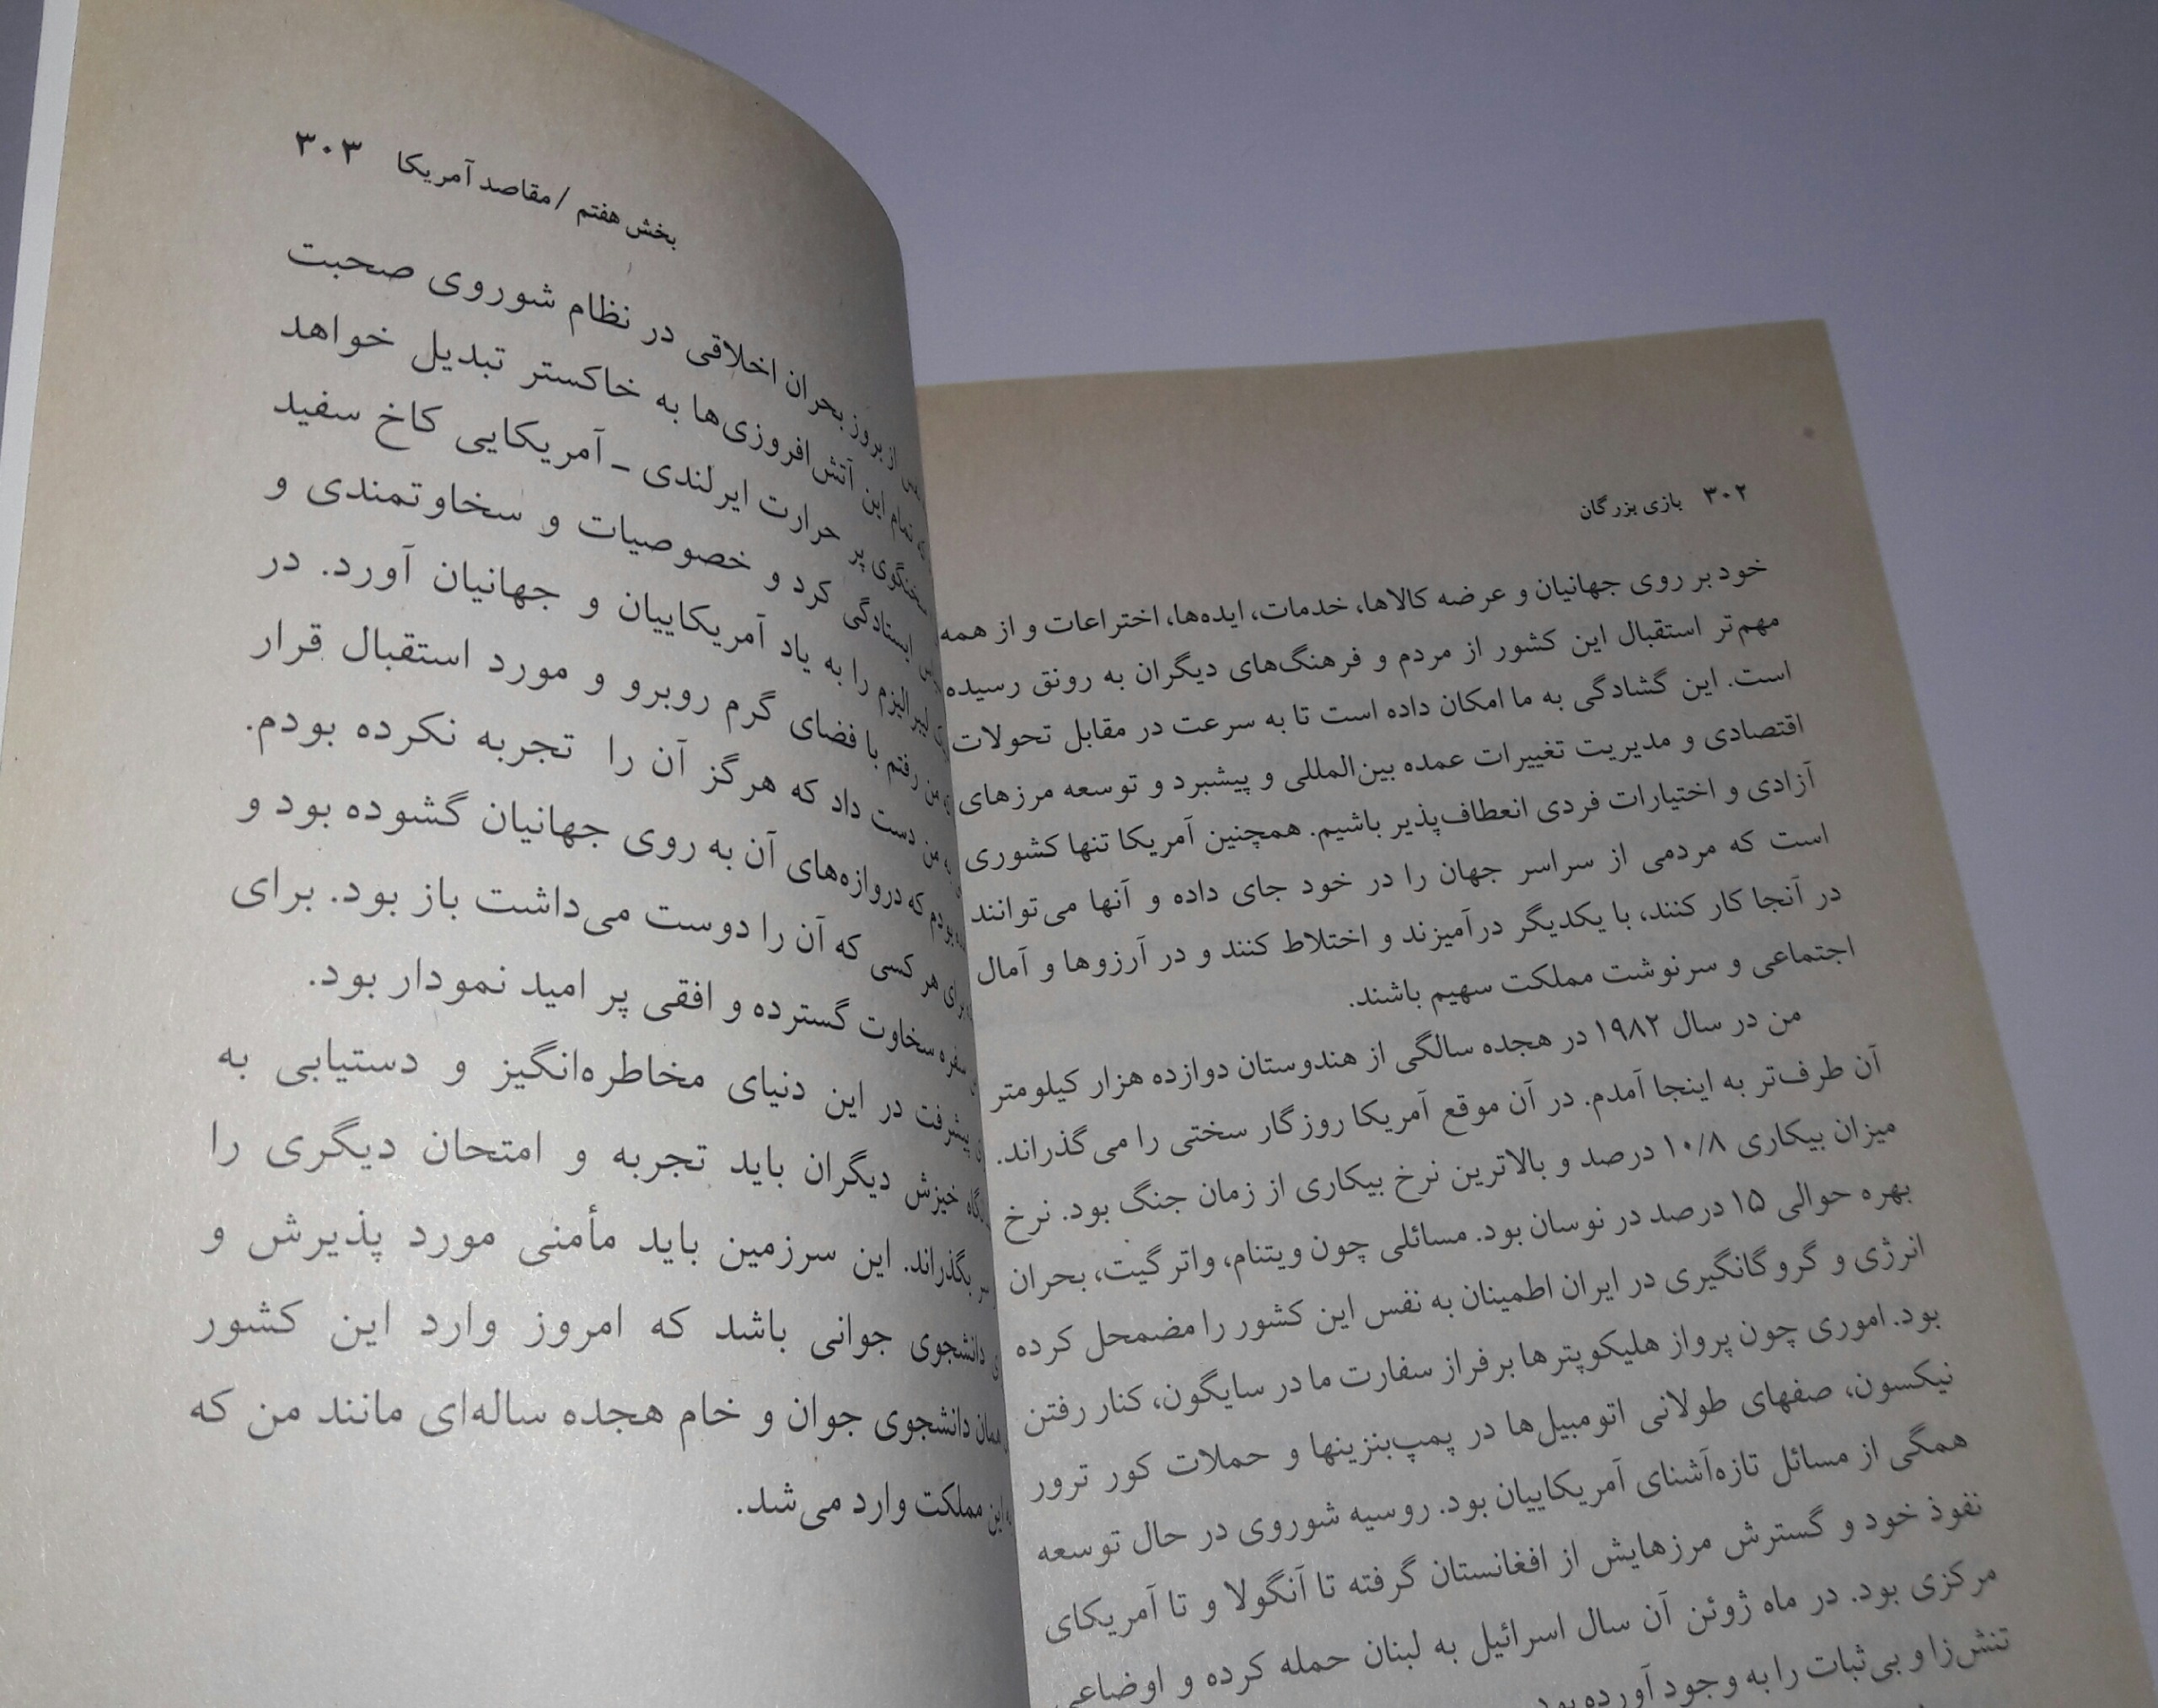 ۳۰۲ بازی بزرگان
خود بر روی جهانیان و عرضه کالاها، خدمات، ایده‌ها، اختراعات و از همه
مهم‌تر استقبال این کشور از مردم و فرهنگ‌های دیگران به رونق رسیده
است. این گشادگی به ما امکان داده است تا به سرعت در مقابل تحولات
اقتصادی و مدیریت تغییرات عمده بین‌المللی و پیشبرد و توسعه مرزهای
آزادی و اختیارات فردی انعطاف‌پذیر باشیم. همچنین آمریکا تنها کشوری
است که مردمی از سراسر جهان را در خود جای داده و آنها می‌توانند
در آنجا کار کنند، با یکدیگر درآمیزند و اختلاط کنند و در آرزوها و آمال
اجتماعی و سرنوشت مملکت سهیم باشند.
من در سال ۱۹۸۲ در هجده سالگی از هندوستان دوازده هزار کیلومتر
آن طرف‌تر به اینجا آمدم. در آن موقع آمریکا روزگار سختی را می‌گذراند.
میزان بیکاری ۱۰/۸ درصد و بالاترین نرخ بیکاری از زمان جنگ بود. نرخ
بهره حوالی ۱۵ درصد در نوسان بود. مسائلی چون ویتنام، واترگیت، بحران
انرژی و گروگانگیری در ایران اطمینان به نفس این کشور را مضمحل کرده
بود. اموری چون پرواز هلیکوپترها برفراز سفارت ما در سایگون، کنار رفتن
نیکسون، صفهای طولانی اتومبیل‌ها در پمپ‌بنزینها و حملات کور ترور
همگی از مسائل تازه‌آشنای آمریکاییان بود. روسیه شوروی در حال توسعه
نفوذ خود و گسترش مرزهایش از افغانستان گرفته تا آنگولا و تا آمریکای
مرکزی بود. در ماه ژوئن آن سال اسرائیل به لبنان حمله کرده و اوضاعی
تنش‌زا و بی‌ثبات را به وجود آورده بود.
بخش هفتم / مقاصد آمریکا ۳۰۳
از بروز بحران اخلاقی در نظام شوروی صحبت
تمام این آتش‌افروزی‌ها به خاکستر تبدیل خواهد
سخنگوی پر حرارت ایرلندی ـ آمریکایی کاخ سفید
ایستادگی کرد و خصوصیات و سخاوتمندی و
لیبرالیزم را به یاد آمریکاییان و جهانیان آورد. در
من رفتم با فضای گرم روبرو و مورد استقبال قرار
من دست داد که هرگز آن را تجربه نکرده بودم.
بودم که دروازه‌های آن به روی جهانیان گشوده بود و
برای هر کسی که آن را دوست می‌داشت باز بود. برای
سفره سخاوت گسترده و افقی پر امید نمودار بود.
پیشرفت در این دنیای مخاطره‌انگیز و دستیابی به
خیزش دیگران باید تجربه و امتحان دیگری را
بگذراند. این سرزمین باید مأمنی مورد پذیرش و
دانشجوی جوانی باشد که امروز وارد این کشور
همان دانشجوی جوان و خام هجده ساله‌ای مانند من که
این مملکت وارد می‌شد.